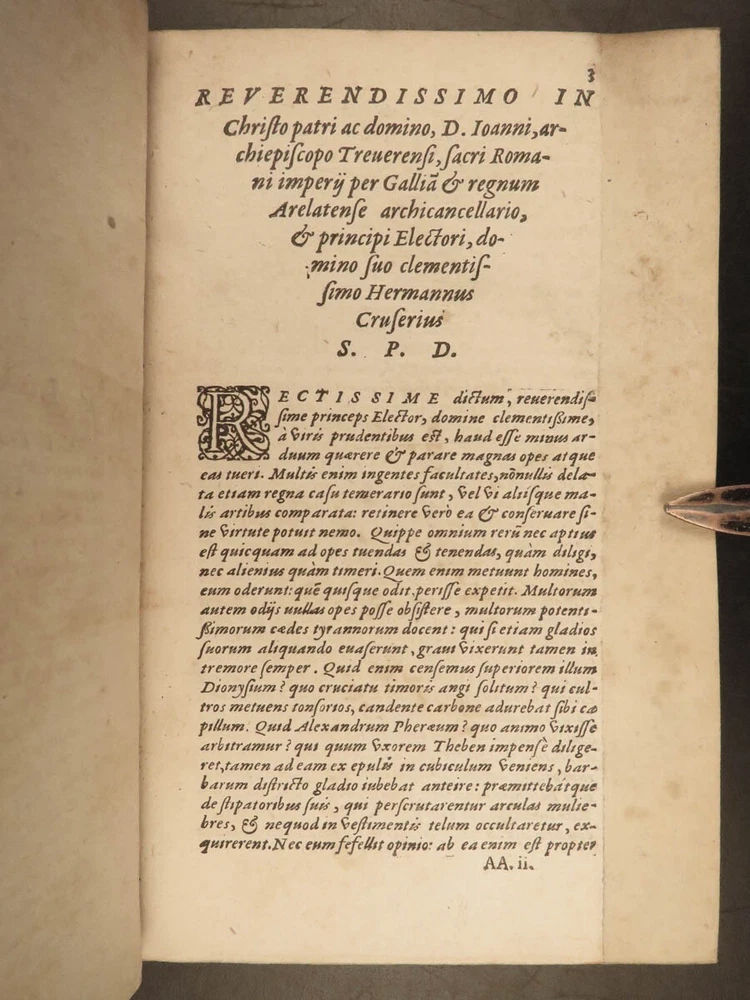 3
REVERENDISSIMO IN
Chriſto patri ac domino, D. Ioanni, ar-
chiepiſcopo Treuerenſi, ſacri Roma-
ni imperij per Galliā & regnum
Arelatenſe archicancellario,
& principi Electori, do-
mino ſuo clementiſ-
ſimo Hermannus
Cruſerius
S. P. D.
RECTISSIME dictum, reuerendiſ-
ſime princeps Elector, domine clementißime,
à viris prudentibus est, haud eſſe minus ar-
duum quærere & parare magnas opes atque
eas tueri. Multis enim ingentes facultates, nōnullis dela-
ta etiam regna caſu temerario ſunt, vel vi aliiſque ma-
lis artibus comparata: retinere verò ea & conſeruare ſi-
ne virtute potuit nemo. Quippe omnium rerū nec aptius
est quicquam ad opes tuendas & tenendas, quàm diligi,
nec alienius quàm timeri. Quem enim metuunt homines,
eum oderunt: quē quiſque odit, periſſe expetit. Multorum
autem odijs nullas opes poſſe obſiſtere, multorum potenti-
ßimorum cædes tyrannorum docent: qui ſi etiam gladios
ſuorum aliquando euaſerunt, graui vixerunt tamen in
tremore ſemper. Quid enim cenſemus ſuperiorem illum
Dionyſium? quo cruciatu timoris angi ſolitum? qui cul-
tros metuens tonſorios, candente carbone adurebat ſibi ca
pillum. Quid Alexandrum Pheræum? quo animo vixiſſe
arbitramur? qui quum vxorem Theben impenſè dilige-
ret, tamen ad eam ex epulis in cubiculum veniens, bar-
barum diſtricto gladio iubebat anteire: præmittebátque
de ſtipatoribus ſuis, qui perſcrutarentur arculas mulie-
bres, & ne quod in veſtimentis telum occultaretur, ex-
quirerent. Nec eum fefellit opinio: ab ea enim est propter
AA. ii.